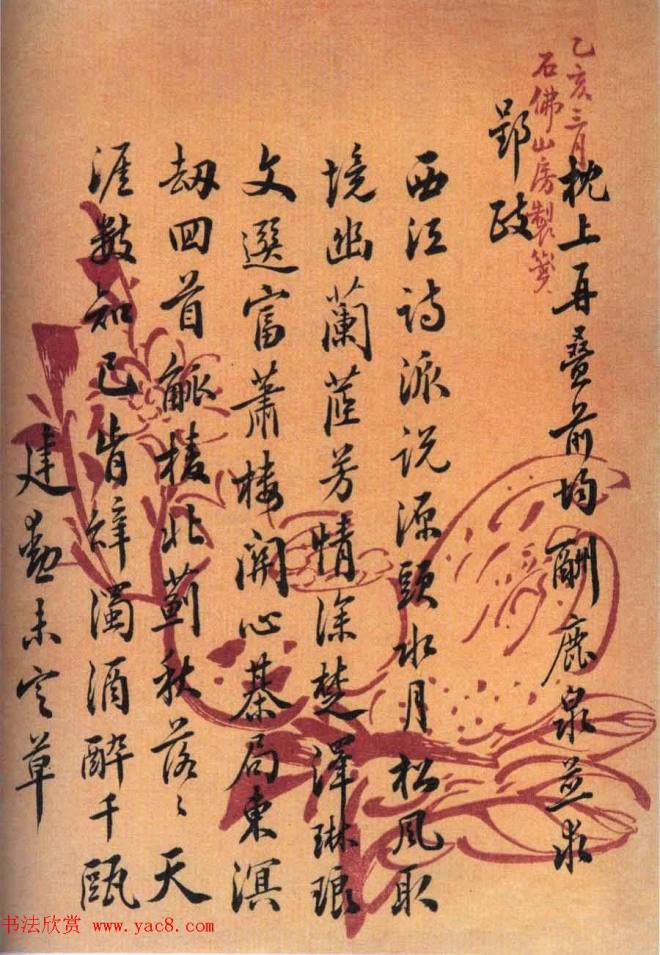 乙亥三月
石佛山房製箋
枕上再叠前均酬鹿泉並求
郢政
西江詩派说源頭水月松风取
境幽蘭茝芳情深楚澤琳琅
文選富蕭樓開心棊局東溟
劫回首觚棱北薊秋落〻天
涯數知己肯辞濁酒醉千甌
建未定草
书法欣赏 www.yac8.com